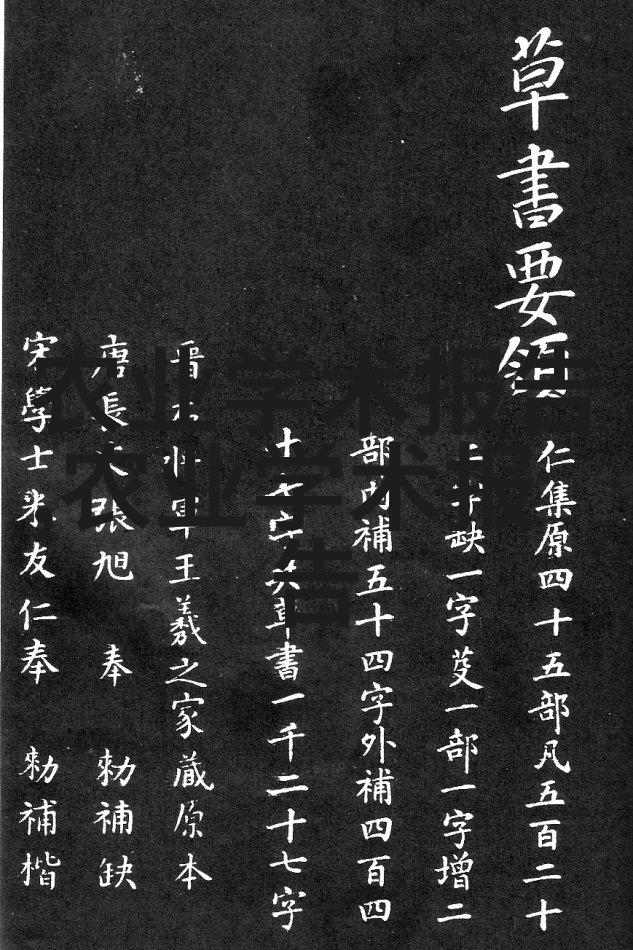 草書要領
仁集原四十五部凡五百二十
二字缺一字芟一部一字增二
部内補五十四字外補四百四
十七字共草書一千二十七字
晉右將軍王羲之家藏原本
唐長史張旭 奉 勅補缺
宋學士米友仁奉 勅補楷
农业学术报告
农业学术报
告